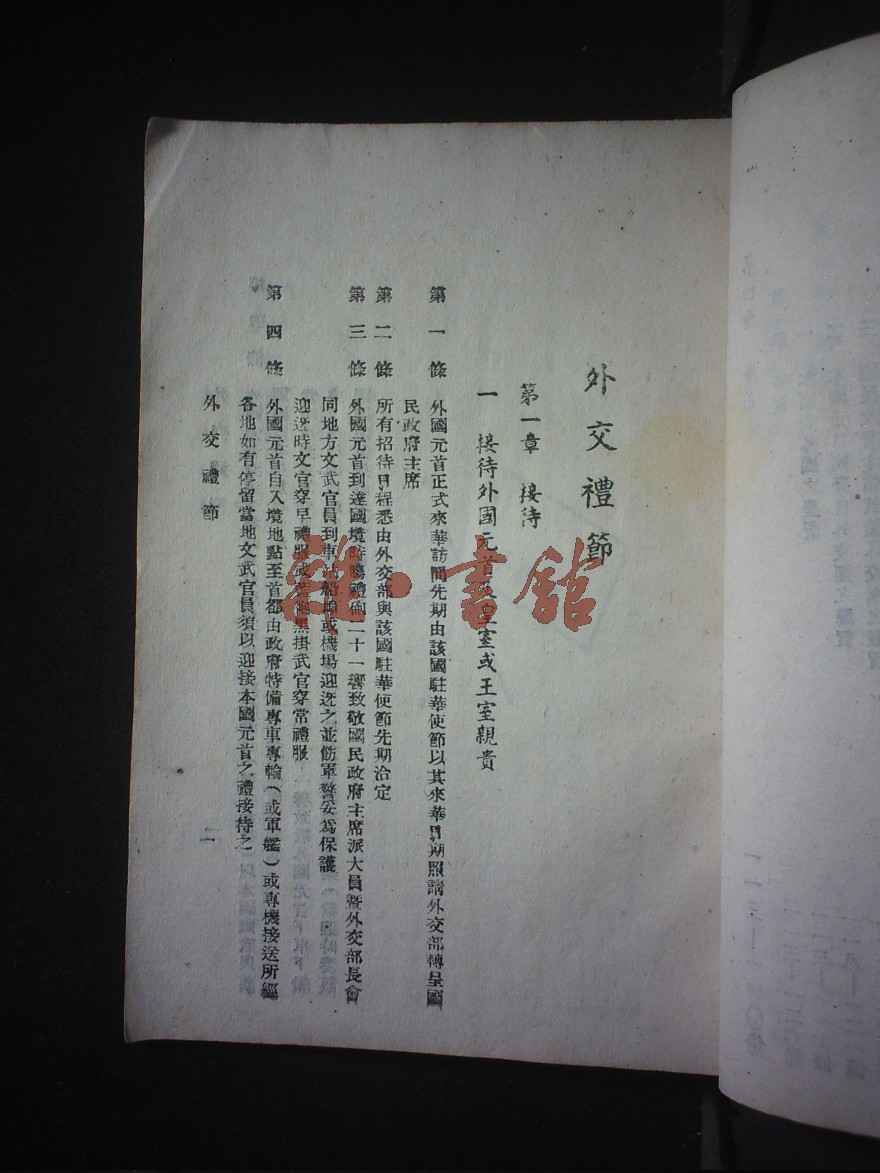 外交禮節
第一章 接待
一 接待外國元首及皇室或王室親貴
第一條 外國元首正式來華訪問先期由該國駐華使節以其來華日期照請外交部轉呈國
民政府主席
第二條 所有招待日程悉由外交部與該國駐華使節先期洽定
第三條 外國元首到達國境時鳴禮砲二十一響致敬國民政府主席派大員暨外交部長會
同地方文武官員到車站船埠或機場迎迓之並飭軍警妥為保護
迎迓時文官穿早禮服或藍袍黑掛武官穿常禮服
第四條 外國元首自入境地點至首都由政府特備專車專輪(或軍艦)或專機接送所經
各地如有停留當地文武官員須以迎接本國元首之禮接待之
外交禮節 二
雜·書館